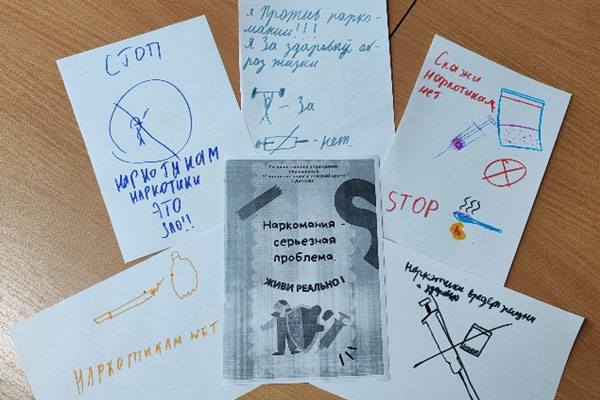 СТОП
НАРКОТИКАМ
НАРКОТИКИ
ЭТО
ЗЛО!!
Я Против нарко-
мании!!!
Я За здоровый об-
раз жизни
- За
- нет.
Скажи
наркотикам
нет
STOP
Наркомания -
серьезная
проблема.
ЖИВИ РЕАЛЬНО!
НАРКОТИКАМ НЕТ
Наркотики вредят жизни
и здоровью